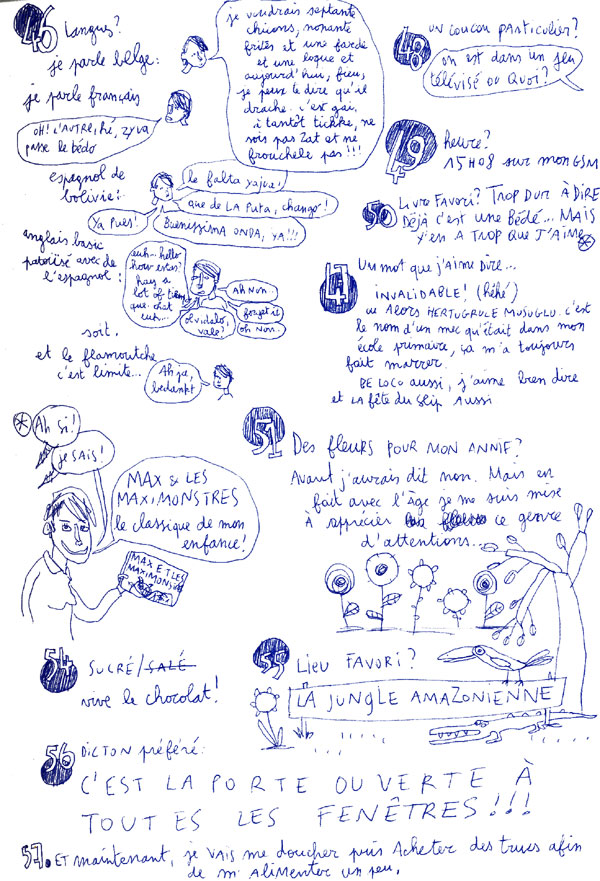 46 Langues?
je parle belge:
je voudrais septante
chicons, nonante
frites et une farde
et une loque et
aujourd'hui, fieu,
je peux te dire qu'il
drache. c'est gai.
à tantôt tickke, ne
sois pas Zat et ne
frouchele pas!!!
je parle français
OH! L'AUTRE, hé, zyva
passe le bédo
espagnol de
bolivie:
le falta yajua!
que de LA PUTA, chango!
Ya Pues!
BUENISSIMA ONDA, YA!!!
anglais basic
patoisé avec de
l'espagnol:
euh... hello
how
lot of
que
Ah non..
olvidalo,
vale?
forget it
oh Non..
soit.
et le flamoutche
c'est limite...
Ah ja,
bedankt
48 UN COUCOU PARTICULIER?
on EST DANS UN JEU
TÉLÉVISÉ OU QUOI?
49 heure?
15H08 sur mon GSM
50 Livre Favori? TROP DUR À DIRE
DÉJÀ C'EST UNE BÉDÉ... MAIS
Y'EN A TROP QUE J'AIME *
47 UN MOT QUE J'AIME DIRE...
INVALIDABLE! (héhé)
ou Alors HERTUGRULE MUSUGLU. c'est
le nom d'un mec qu'était dans mon
école primaire, ça m'a toujours
fait marrer.
BE LOCO aussi, j'aime bien dire
et LA fête du Slip AUSSI
* Ah Si!
je SAIS!
MAX & LES
MAXIMONSTRES
le classique de mon
enfance!
MAX ET LES
MAXIMONSTRES
51 Des fleurs POUR MON ANNIF?
Avant j'aurais dit non. Mais en
fait avec l'âge je me suis mise
À apprécier ce genre
d'attentions...
54 SUCRÉ/SALÉ
vive le chocolat!
55 Lieu FAVORI?
LA JUNGLE AMAZONIENNE
56 DICTON préféré:
C'EST LA PORTE OUVERTE À
TOUTES LES FENÊTRES!!!
57. ET maintenant, je VAIS me doucher puis Acheter des trucs afin
de m'ALIMENTER un peu.